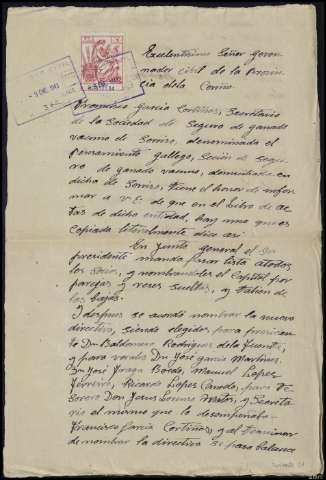 Excelentisimo Señor Gover-
nador civil de la Provin-
cia de la Coruña
Francisco Garcia Cortiñas, Secretario
de la Sociedad de Seguro de ganado
vacuno de Somiro, denominada el
Pensamiento gallego, Sección de segu-
ro de ganado vacuno, domiciliada en
dicho de Somiro, tiene el honor de infor-
mar a V.E. de que en el Libro de ac-
tas de dicha entidad, hay una que es
copiada literalmente dice asi
En Junta general el Sr
presidente manda pasar lista a todos
los socios, y nombrandoles el Capital por
parejas y reses sueltas, y
las bajas.
I despues se acordó nombrar la nueva
directiva, siendo elegidos, para presiden-
te Dn Baldomero Rodriguez de la Fuente,
y para vocales Dn José Garcia Martinez,
Dn José Manuel Lopez
Ferreiro, Ricardo Lopez para Te-
sorero Don Jesus y Secreta-
rio el mismo que la desempeñaba
Francisco Garcia Cortiñas, y al terminar
de nombrar la directiva se paso balance